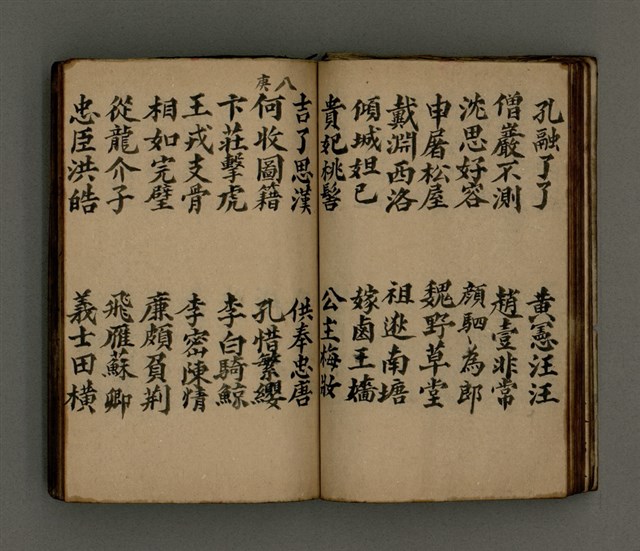 孔融了了 黃憲汪汪
僧巖不測 趙壹非常
沈思好客 顏駟為郎
申屠松屋 魏野草堂
戴淵西洛 祖逖南塘
傾城妲己 嫁鹵王嬙
貴妃桃髻 公主梅妝
八庚
吉了思漢 供奉忠唐
何收圖籍 孔惜繁纓
卞莊擊虎 李白騎鯨
王戎支骨 李密陳情
相如完璧 廉頗負荆
從龍介子 飛雁蘇卿
忠臣洪皓 義士田橫